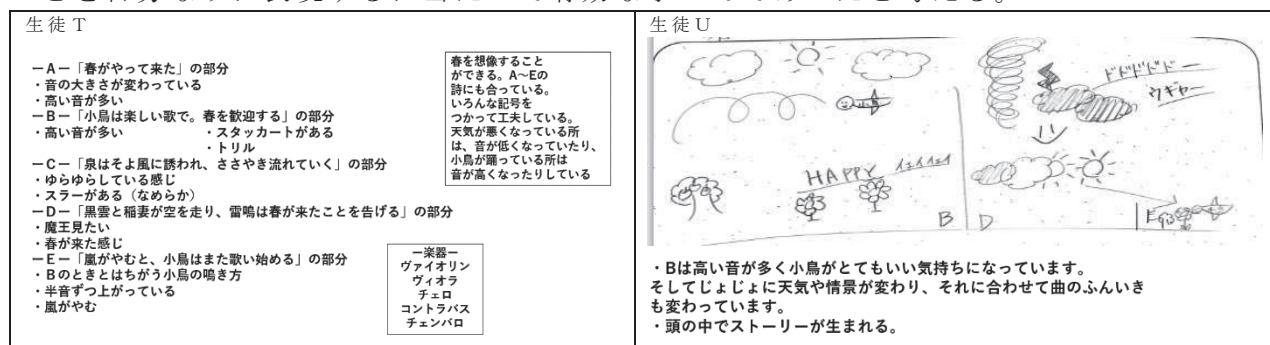 生徒T
ーAー「春がやって来た」の部分
・音の大きさが変わっている
・高い音が多い
ーBー「小鳥は楽しい歌で。春を歓迎する」の部分
・高い音が多い　・スタッカートがある
・トリル
ーCー「泉はそよ風に誘われ、ささやき流れていく」の部分
・ゆらゆらしている感じ
・スラーがある（なめらか）
ーDー「黒雲と稲妻が空を走り、雷鳴は春が来たことを告げる」の部分
・魔王見たい
・春が来た感じ
ーEー「嵐がやむと、小鳥はまた歌い始める」の部分
・Bのときとはちがう小鳥の鳴き方
・半音ずつ上がっている
・嵐がやむ
春を想像すること
ができる。A～Eの
詩にも合っている。
いろんな記号を
つかって工夫している。
天気が悪くなっている所
は、音が低くなっていたり、
小鳥が踊っている所は
音が高くなったりしている
ー楽器ー
ヴァイオリン
ヴィオラ
チェロ
コントラバス
チェンバロ
生徒U
HAPPY イェイイェイ
B
ドドドドドー
ウギャー
D
E
・Bは高い音が多く小鳥がとてもいい気持ちになっています。
そしてじょじょに天気や情景が変わり、それに合わせて曲のふんいき
も変わっています。
・頭の中でストーリーが生まれる。